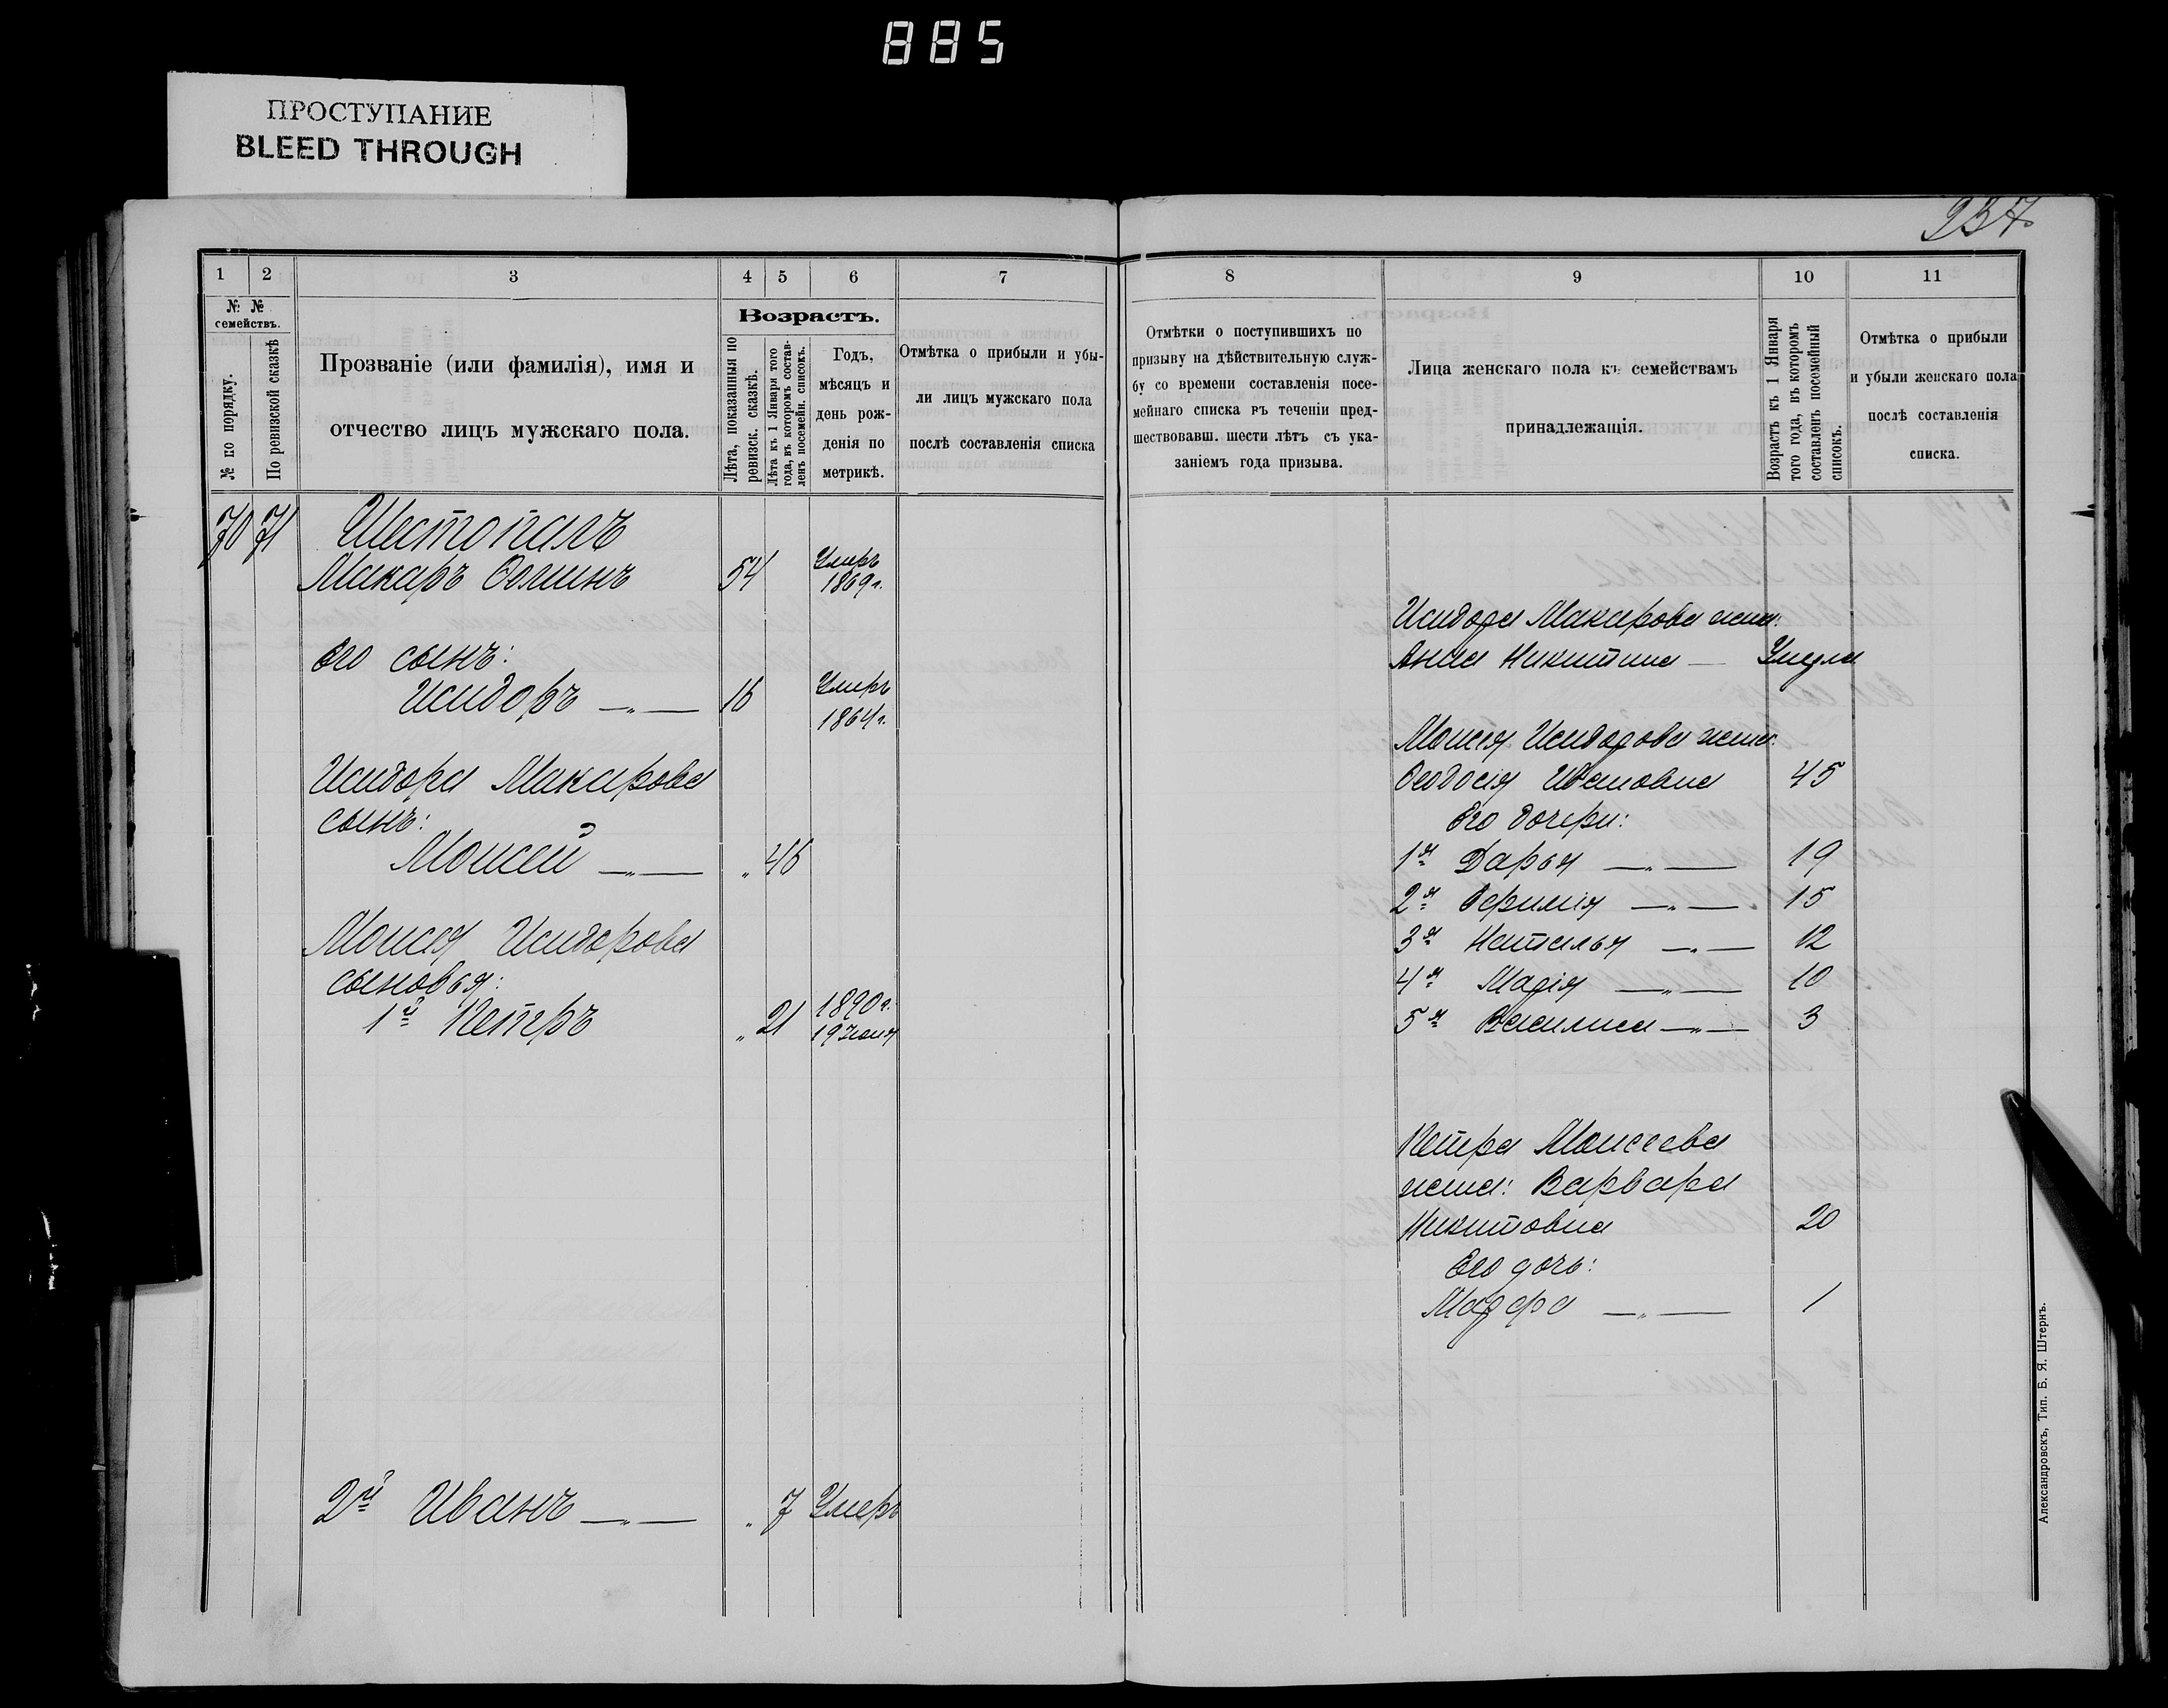 885
ПРОСТУПАНИЕ
BLEED THROUGH
237
1 2 3 4 5 6 7
№ №
семействъ.
№ по порядку.
По ревизской сказкѣ
Прозваніе (или фамилія), имя и
отчество лицъ мужскаго пола.
Возрастъ.
Лѣта, показанныя по
ревизск. сказкѣ.
Лѣта къ 1 Января того
года, въ которомъ состав-
ленъ посемейн. списокъ.
Годъ,
мѣсяцъ и
день рож-
денія по
метрикѣ.
Отмѣтка о прибыли и убы-
ли лицъ мужскаго пола
послѣ составленія списка
70 71 Шестопалъ
Макаръ 54 Умеръ
1869 г.
Его сынъ:
Исидоръ —„— 16 Умеръ
1864 г.
Исидора Макарова
сынъ:
Моисей —„— „ 46
Моисея Исидорова
сыновья:
1й Петръ „ 21 1890 г.
19 Іюня
2й Иванъ —„— „ 7 Умеръ
8 9 10 11
Отмѣтки о поступившихъ по
призыву на дѣйствительную служ-
бу со времени составленія посе-
мейнаго списка въ теченіи пред-
шествовавш. шести лѣтъ съ ука-
заніемъ года призыва.
Лица женскаго пола къ семействамъ
принадлежащія.
Возрастъ къ 1 Января
того года, въ которомъ
составленъ посемейный
списокъ.
Отмѣтка о прибыли
и убыли женскаго пола
послѣ составленія
списка.
Исидора Макарова жена:
Анна Никитина — Умерла
Моисея Исидорова жена:
Феодосія Ивановна 45
Его дочери:
1я Дарья —„— 19
2я Ефимія —„— 15
3я Наталья —„— 12
4я Марія —„— 10
5я Василиса —„— 3
Петра Моисеева
жена: Варвара
Никитовна 20
Его дочь:
—„— 1
Александровскъ, Тип. Б. Я. Штернъ.